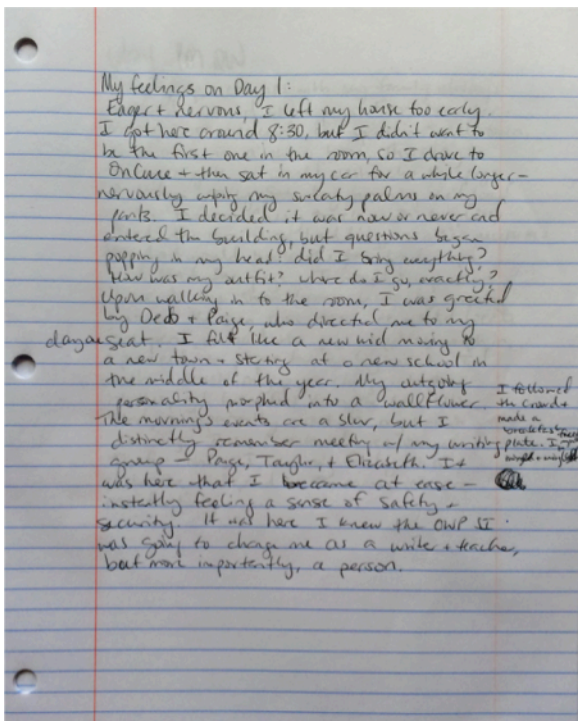 My feelings on Day 1:
Eager + nervous, I left my house too early.
I got here around 8:30, but I didn't want to
be the first one in the room, so I drove to
OnCue + then sat in my car for a while longer –
nervously wiping my sweaty palms on my
pants. I decided it was now or never and
entered the building, but questions began
popping in my head: did I bring everything?
How was my outfit? Where do I go, exactly?
Upon walking in to the room, I was greeted
by Deb + Paige, who directed me to my
seat. I felt like a new kid moving to
a new town + starting at a new school in
the middle of the year. My outgoing
personality morphed into a wallflower.
I followed
the crowd +
made a
breakfast
plate. I
The morning's events are a blur, but I
distinctly remember meeting w/ my writing
group – Paige, Taylor, + Elizabeth. It
was here that I became at ease –
instantly feeling a sense of safety +
security. It was here I knew the OWP SI
was going to change me as a writer + teacher,
but more importantly, a person.